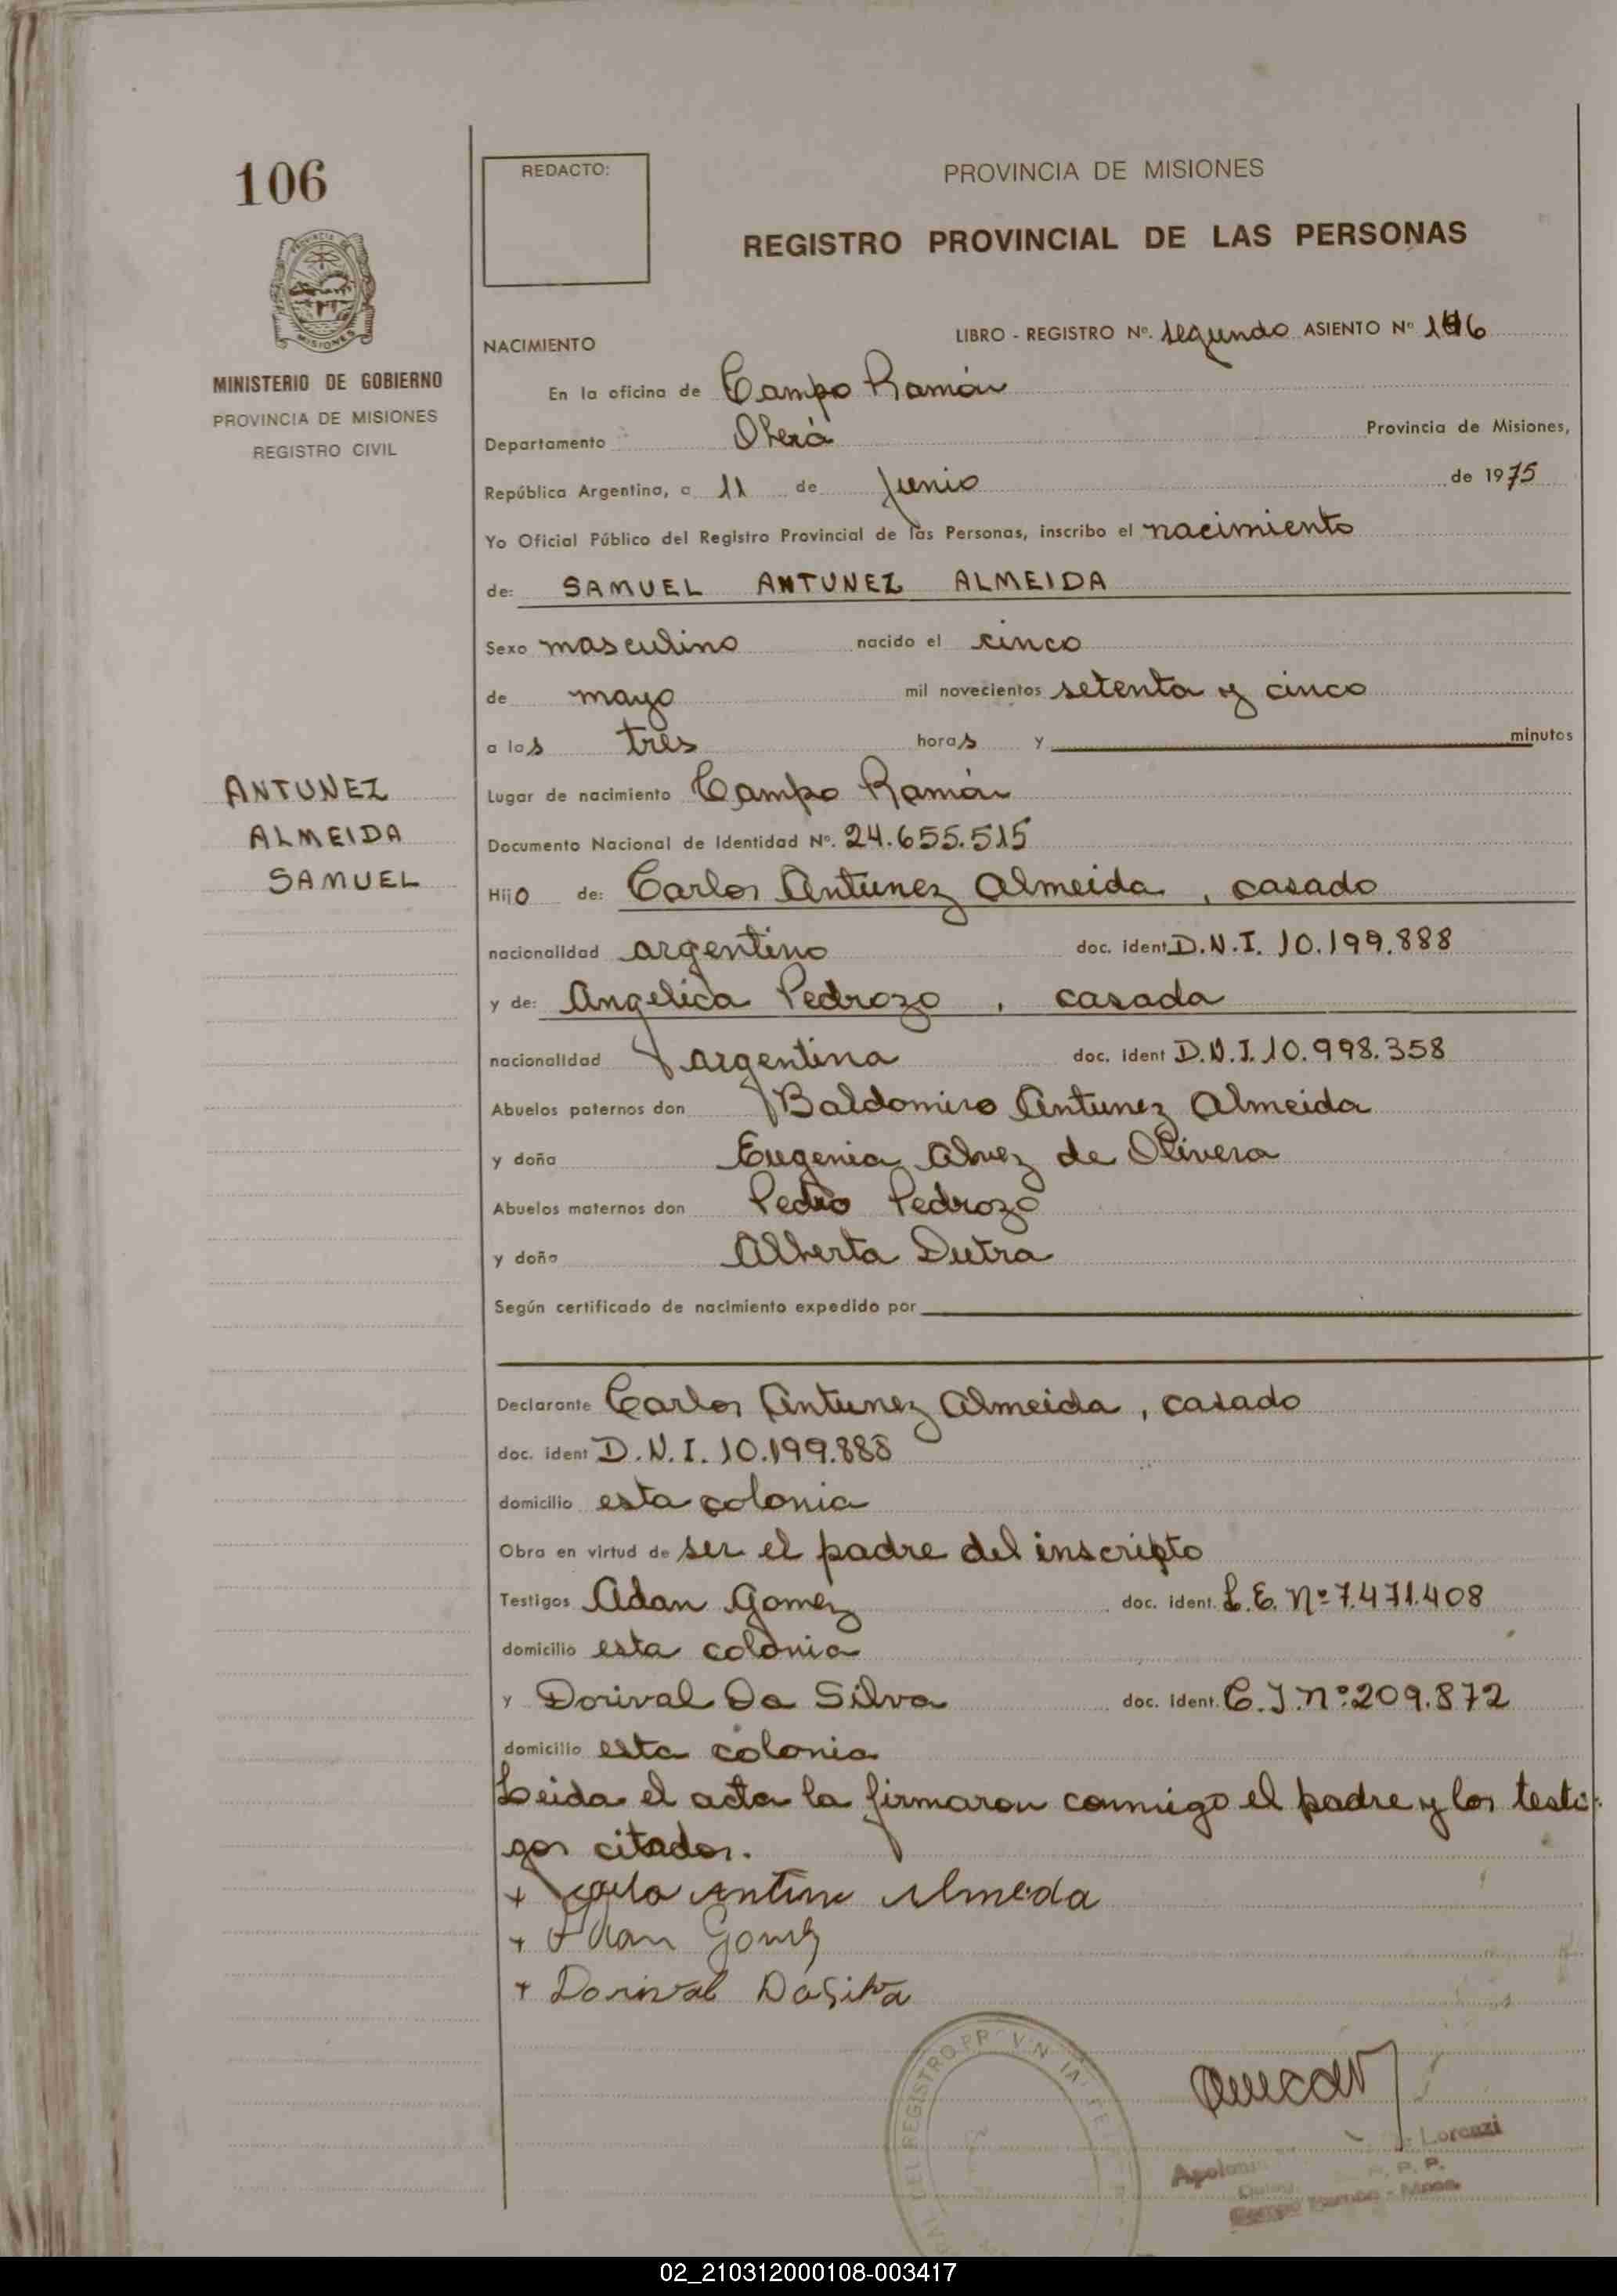 106
PROVINCIA DE
MISIONES
MINISTERIO DE GOBIERNO
PROVINCIA DE MISIONES
REGISTRO CIVIL
ANTUNEZ
ALMEIDA
SAMUEL
REDACTO:
PROVINCIA DE MISIONES
REGISTRO PROVINCIAL DE LAS PERSONAS
NACIMIENTO
LIBRO - REGISTRO Nº. segundo ASIENTO Nº
En la oficina de Campo Ramón
Departamento Oberá Provincia de Misiones,
República Argentina, a 11 de junio de 1975
Yo Oficial Público del Registro Provincial de las Personas, inscribo el nacimiento
de: SAMUEL ANTUNEZ ALMEIDA
Sexo masculino nacido el cinco
de mayo mil novecientos setenta y cinco
a las tres horas y minutos
Lugar de nacimiento Campo Ramón
Documento Nacional de Identidad Nº. 24.655.515
Hijo de: Carlos Antunez Almeida, casado
nacionalidad argentino doc. ident D.N.I. 10.199.888
y de: Angelica Pedrozo, casada
nacionalidad argentina doc. ident D.N.I. 10.998.358
Abuelos paternos don Baldomiro Antunez Almeida
y doña Eugenia Alvez de Olivera
Abuelos maternos don Pedro Pedrozo
y doña Alberta Dutra
Según certificado de nacimiento expedido por
Declarante Carlos Antunez Almeida, casado
doc. ident D.N.I. 10.199.888
domicilio esta colonia
Obra en virtud de ser el padre del inscripto
Testigos Adan Gomez doc. ident. L.E. Nº 7.471.408
domicilio esta colonia
y Dorival Da Silva doc. ident. C.I. Nº 209.872
domicilio esta colonia
Leida el acta la firmaron conmigo el padre y los testi-
gos citados.
+ Antune Almeda
+ Adan Gomez
+ Dorival DaSilva
DEL REGISTRO
Lorenzi
Campo Ramón - Mnes.
02_210312000108-003417